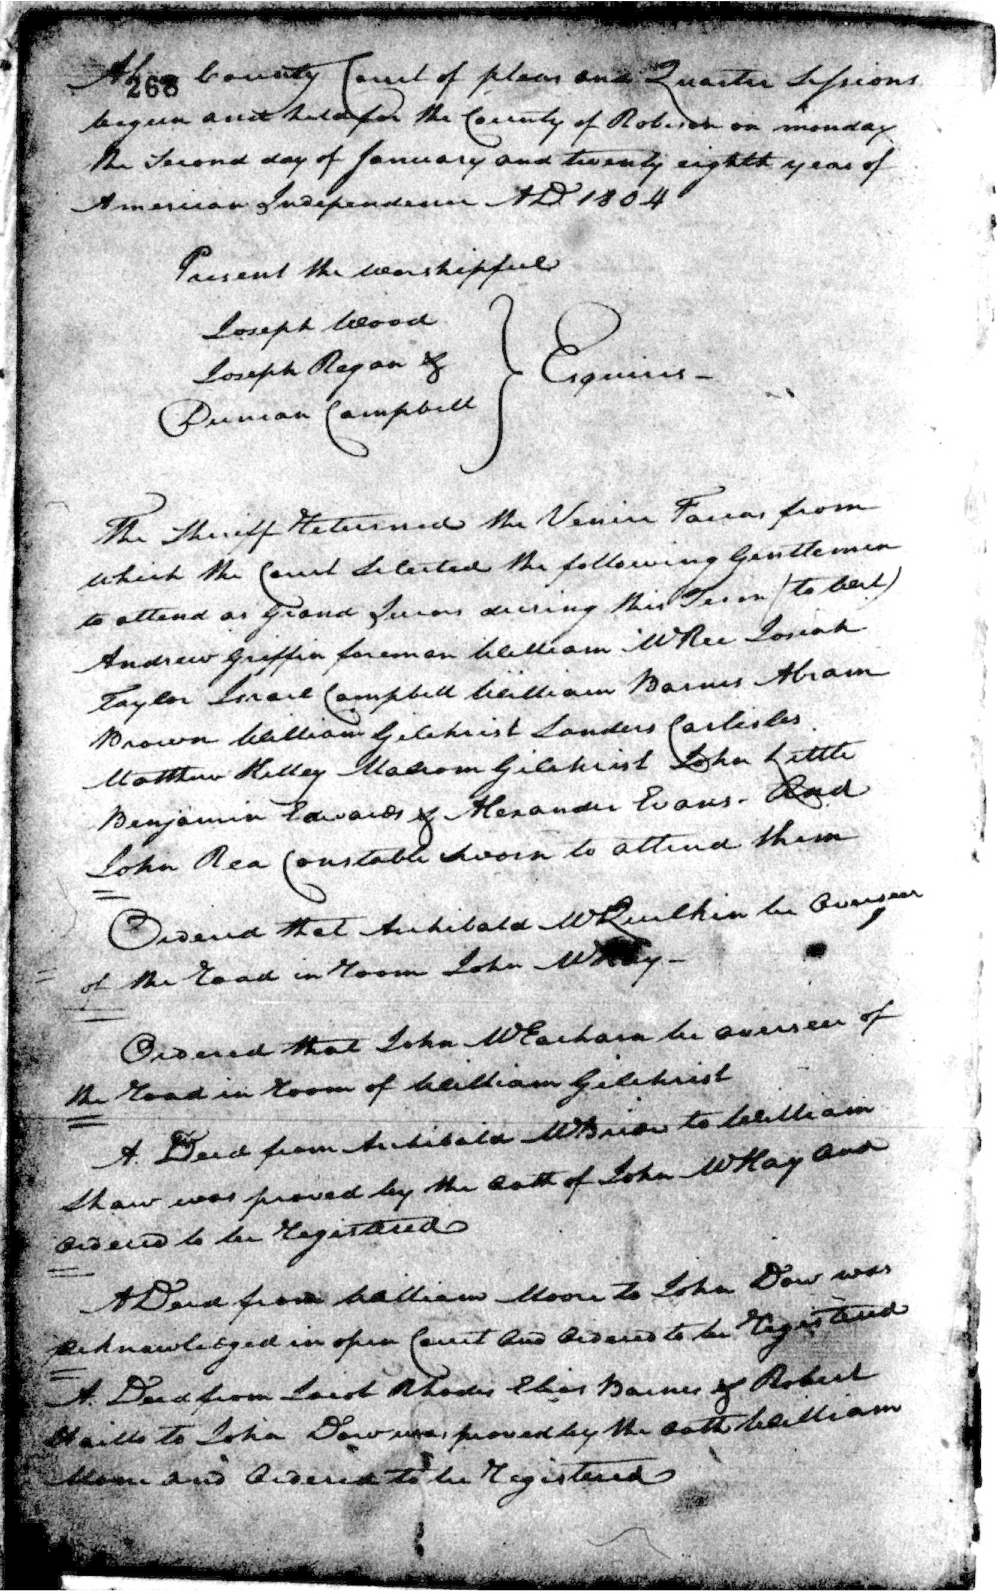 At a County Court of pleas and Quarter Sessions
268
begun and held for the County of Robeson on monday
the Second day of January and twenty eighth year of
American Independence AD. 1804
Present the worshipful
Joseph Wood
Joseph Regan &
Duncan Campbell
Esquires -
The Sheriff Returned the Venire Facias from
which the Court Selected the following Gentlemen
to attend as Grand Jurors during this Term (to wit)
Andrew Griffin foreman William McRee Josiah
Taylor Israel Campbell William Barnes Abram
Brown William Gilchrist Sanders Carlisles
Matthew Kelley Malcom Gilchrist John Little
Benjamin Edwards & Alexander Evans - And
John Rea Constable Sworn to attend them
Ordered that Archibald be Overseer
of the Road in Room John McKay -
Ordered that John McEachern be overseer of
the Road in Room of William Gilchrist
A. Deed from Archibald to William
Shaw was proved by the oath of John McKay and
Ordered to be Registered
A Deed from William Moore to John Dow was
acknowledged in open Court and ordered to be Registered
A. Deed from Jacob Rhodes Elias Barnes & Robert
to John Dow was proved by the oath William
Moore and Ordered to be Registered